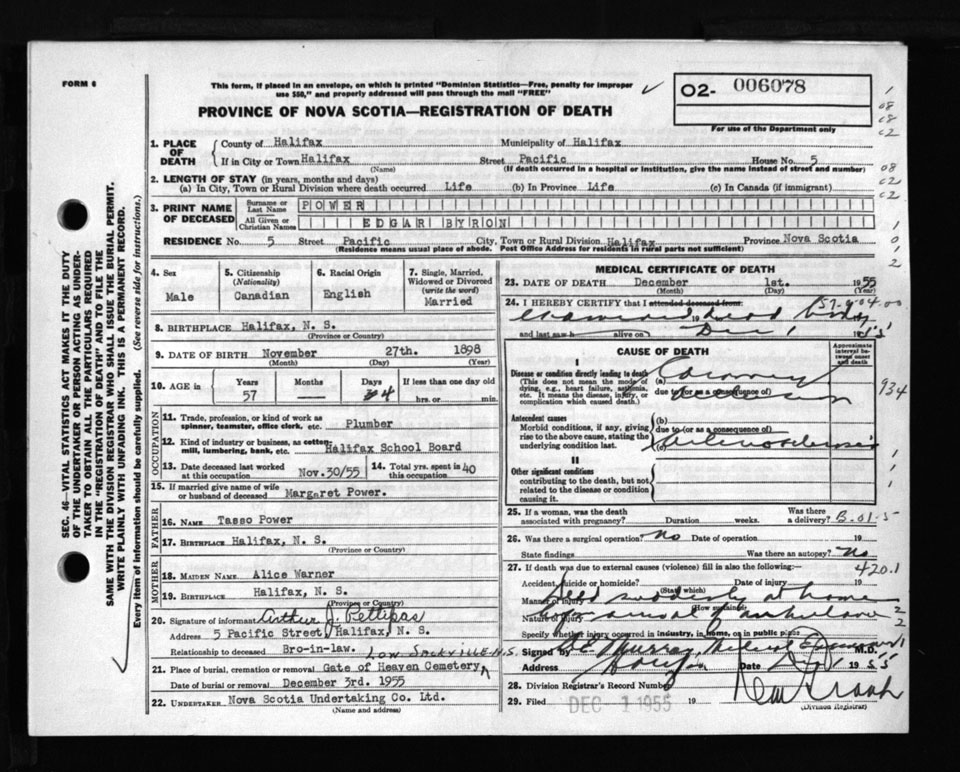 FORM 6
This form, if placed in an envelope, on which is printed "Dominion Statistics—Free, penalty for improper
use $50," and properly addressed will pass through the mail "FREE"
PROVINCE OF NOVA SCOTIA—REGISTRATION OF DEATH
02- 006078
For use of the Department only
SEC. 46—VITAL STATISTICS ACT MAKES IT THE DUTY
OF THE UNDERTAKER OR PERSON ACTING AS UNDER-
TAKER TO OBTAIN ALL THE PARTICULARS REQUIRED
IN THE "REGISTRATION OF DEATH" AND TO FILE THE
SAME WITH THE DIVISION REGISTRAR WHO SHALL ISSUE THE BURIAL PERMIT.
WRITE PLAINLY WITH UNFADING INK. THIS IS A PERMANENT RECORD.
Every item of information should be carefully supplied. (See reverse side for instructions.)
1. PLACE OF DEATH County of Halifax Municipality of Halifax
If in City or Town Halifax Street Pacific House No. 5
(Name) (If death occurred in a hospital or institution, give the name instead of street and number)
2. LENGTH OF STAY (in years, months and days)
(a) In City, Town or Rural Division where death occurred Life (b) In Province Life (c) In Canada (if immigrant)
3. PRINT NAME OF DECEASED Surname or Last Name POWER
All Given or Christian Names EDGAR BYRON
RESIDENCE No. 5 Street Pacific City, Town or Rural Division Halifax Province Nova Scotia
(Residence means usual place of abode. Post Office Address for Residents in rural parts not sufficient)
4. Sex Male
5. Citizenship (Nationality) Canadian
6. Racial Origin English
7. Single, Married, Widowed or Divorced (write the word) Married
8. BIRTHPLACE Halifax, N. S.
(Province or Country)
9. DATE OF BIRTH November 27th. 1898
(Month) (Day) (Year)
10. AGE in Years 57 Months — Days 4 If less than one day old
hrs. or min.
OCCUPATION
11. Trade, profession, or kind of work as
spinner, teamster, office clerk, etc. Plumber
12. Kind of industry or business, as cotton
mill, lumbering, bank, etc. Halifax School Board
13. Date deceased last worked at this occupation Nov.30/55 14. Total yrs. spent in this occupation 40
15. If married give name of wife
or husband of deceased Margaret Power.
FATHER
16. NAME Tasso Power
17. BIRTHPLACE Halifax, N. S.
(Province or Country)
MOTHER
18. MAIDEN NAME Alice Warner
19. BIRTHPLACE Halifax, N. S.
(Province or Country)
20. Signature of informant Arthur J. Pettipas
Address 5 Pacific Street, Halifax, N. S.
Relationship to deceased Bro-in-law. LOW SACKVILLE N.S.
21. Place of burial, cremation or removal Gate of Heaven Cemetery
Date of burial or removal December 3rd. 1955
22. UNDERTAKER Nova Scotia Undertaking Co. Ltd.
(Name and address)
MEDICAL CERTIFICATE OF DEATH
23. DATE OF DEATH December 1st. 1955
(Month) (Day) (Year)
24. I HEREBY CERTIFY that I attended deceased from
Examined dead body 19
and last saw h alive on Dec 1 1955
CAUSE OF DEATH
Approximate interval between onset and death
I
Disease or condition directly leading to death
(This does not mean the mode of
dying, e.g., heart failure, asthenia,
etc. It means the disease, injury, or
complication which caused death.)
(a) Coronary
due to (or as a consequence of)
Occlusion
934
Antecedent causes
Morbid conditions, if any, giving
rise to the above cause, stating the
underlying condition last.
(b)
due to (or as a consequence of)
(c) Arteriosclerosis
II
Other significant conditions
contributing to the death, but not
related to the disease or condition
causing it.
25. If a woman, was the death
associated with pregnancy? Duration weeks. Was there
a delivery? B-01-5
26. Was there a surgical operation? No Date of operation 19
State findings Was there an autopsy? No
27. If death was due to external causes (violence) fill in also the following:— 420.1
Accident, suicide or homicide? Date of injury 19
(State which)
Manner of injury Died suddenly at home
(How sustained)
Nature of injury
Specify whether injury occurred in industry, in home, or in public place
Signed by Murray, Medical Examiner M.D.
Address Date Dec 1 1955
28. Division Registrar's Record Number
29. Filed DEC - 1 1955 19
(Division Registrar)